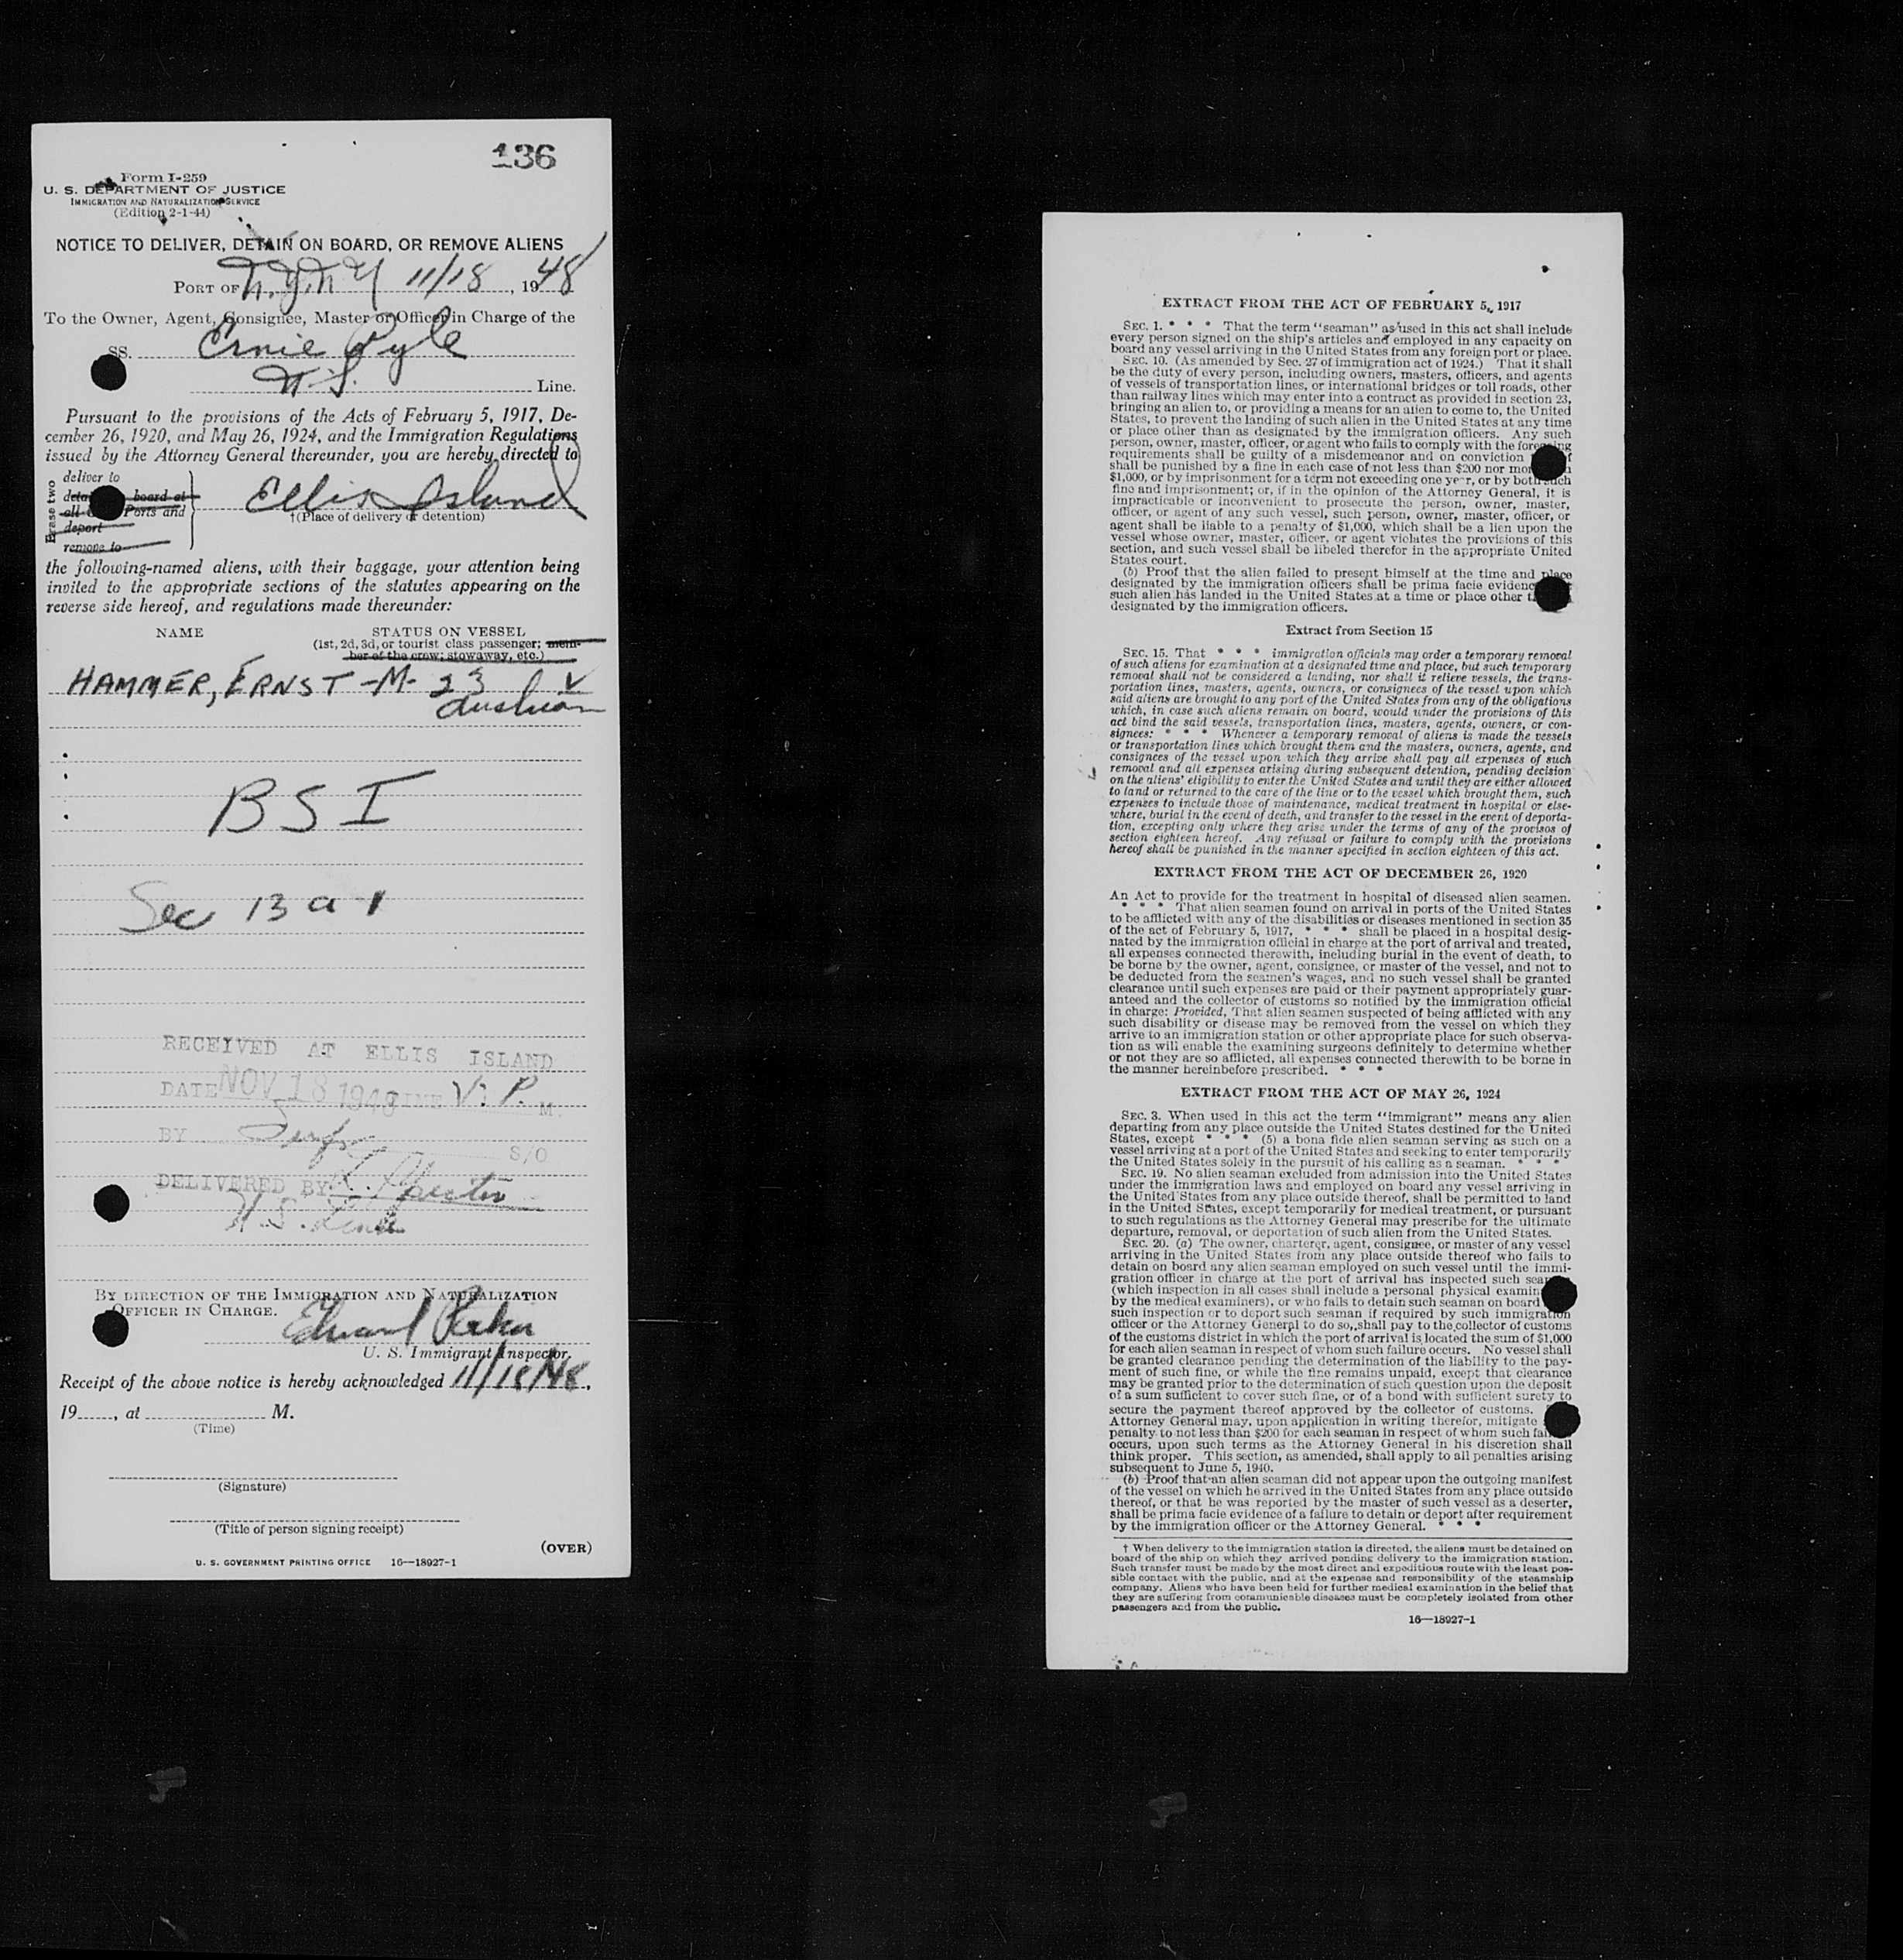 136
Form I-259
U. S. DEPARTMENT OF JUSTICE
IMMIGRATION AND NATURALIZATION SERVICE
(Edition 2-1-44)
NOTICE TO DELIVER, DETAIN ON BOARD, OR REMOVE ALIENS
PORT OF N.Y.N.Y 11/18, 1948
To the Owner, Agent, Consignee, Master or Officer in Charge of the
SS. Ernie Pyle
U.S. Line.
Pursuant to the provisions of the Acts of February 5, 1917, De-
cember 26, 1920, and May 26, 1924, and the Immigration Regulations
issued by the Attorney General thereunder, you are hereby directed to
Erase two
deliver to
board at
Ports and
deport
remove to
Ellis Island
†(Place of delivery or detention)
the following-named aliens, with their baggage, your attention being
invited to the appropriate sections of the statutes appearing on the
reverse side hereof, and regulations made thereunder:
NAME STATUS ON VESSEL
(1st, 2d, 3d, or tourist class passenger; mem-
ber of the crew; stowaway, etc.)
HAMMER, ERNST - M - 23 V
BSI
Sec 13 a 1
RECEIVED AT ELLIS ISLAND
DATE NOV 18 1948 TIME P. M.
BY S/O
DELIVERED BY
U.S. Lines
BY DIRECTION OF THE IMMIGRATION AND NATURALIZATION
OFFICER IN CHARGE.
Edward
U. S. Immigrant Inspector.
Receipt of the above notice is hereby acknowledged 11/18/48,
19......, at .................. M.
(Time)
(Signature)
(Title of person signing receipt)
(OVER)
U. S. GOVERNMENT PRINTING OFFICE 16—18927-1
EXTRACT FROM THE ACT OF FEBRUARY 5, 1917
SEC. 1. * * * That the term "seaman" as used in this act shall include
every person signed on the ship's articles and employed in any capacity on
board any vessel arriving in the United States from any foreign port or place.
SEC. 10. (As amended by Sec. 27 of immigration act of 1924.) That it shall
be the duty of every person, including owners, masters, officers, and agents
of vessels of transportation lines, or international bridges or toll roads, other
than railway lines which may enter into a contract as provided in section 23,
bringing an alien to, or providing a means for an alien to come to, the United
States, to prevent the landing of such alien in the United States at any time
or place other than as designated by the immigration officers. Any such
person, owner, master, officer, or agent who fails to comply with the foregoing
requirements shall be guilty of a misdemeanor and on conviction
shall be punished by a fine in each case of not less than $200 nor more
$1,000, or by imprisonment for a term not exceeding one year, or by both such
fine and imprisonment; or, if in the opinion of the Attorney General, it is
impracticable or inconvenient to prosecute the person, owner, master,
officer, or agent of any such vessel, such person, owner, master, officer, or
agent shall be liable to a penalty of $1,000, which shall be a lien upon the
vessel whose owner, master, officer, or agent violates the provisions of this
section, and such vessel shall be libeled therefor in the appropriate United
States court.
(b) Proof that the alien failed to present himself at the time and place
designated by the immigration officers shall be prima facie evidence
such alien has landed in the United States at a time or place other
designated by the immigration officers.
Extract from Section 15
SEC. 15. That * * * immigration officials may order a temporary removal
of such aliens for examination at a designated time and place, but such temporary
removal shall not be considered a landing, nor shall it relieve vessels, the trans-
portation lines, masters, agents, owners, or consignees of the vessel upon which
said aliens are brought to any port of the United States from any of the obligations
which, in case such aliens remain on board, would under the provisions of this
act bind the said vessels, transportation lines, masters, agents, owners, or con-
signees: * * * Whenever a temporary removal of aliens is made the vessels
or transportation lines which brought them and the masters, owners, agents, and
consignees of the vessel upon which they arrive shall pay all expenses of such
removal and all expenses arising during subsequent detention, pending decision
on the aliens' eligibility to enter the United States and until they are either allowed
to land or returned to the care of the line or to the vessel which brought them, such
expenses to include those of maintenance, medical treatment in hospital or else-
where, burial in the event of death, and transfer to the vessel in the event of deporta-
tion, excepting only where they arise under the terms of any of the provisos of
section eighteen hereof. Any refusal or failure to comply with the provisions
hereof shall be punished in the manner specified in section eighteen of this act.
EXTRACT FROM THE ACT OF DECEMBER 26, 1920
An Act to provide for the treatment in hospital of diseased alien seamen.
* * * That alien seamen found on arrival in ports of the United States
to be afflicted with any of the disabilities or diseases mentioned in section 35
of the act of February 5, 1917, * * * shall be placed in a hospital desig-
nated by the immigration official in charge at the port of arrival and treated,
all expenses connected therewith, including burial in the event of death, to
be borne by the owner, agent, consignee, or master of the vessel, and not to
be deducted from the seamen's wages, and no such vessel shall be granted
clearance until such expenses are paid or their payment appropriately guar-
anteed and the collector of customs so notified by the immigration official
in charge: Provided, That alien seamen suspected of being afflicted with any
such disability or disease may be removed from the vessel on which they
arrive to an immigration station or other appropriate place for such observa-
tion as will enable the examining surgeons definitely to determine whether
or not they are so afflicted, all expenses connected therewith to be borne in
the manner hereinbefore prescribed. * * *
EXTRACT FROM THE ACT OF MAY 26, 1924
SEC. 3. When used in this act the term "immigrant" means any alien
departing from any place outside the United States destined for the United
States, except * * * (5) a bona fide alien seaman serving as such on a
vessel arriving at a port of the United States and seeking to enter temporarily
the United States solely in the pursuit of his calling as a seaman. * * *
SEC. 19. No alien seaman excluded from admission into the United States
under the immigration laws and employed on board any vessel arriving in
the United States from any place outside thereof, shall be permitted to land
in the United States, except temporarily for medical treatment, or pursuant
to such regulations as the Attorney General may prescribe for the ultimate
departure, removal, or deportation of such alien from the United States.
SEC. 20. (a) The owner, charterer, agent, consignee, or master of any vessel
arriving in the United States from any place outside thereof who fails to
detain on board any alien seaman employed on such vessel until the immi-
gration officer in charge at the port of arrival has inspected such seaman
(which inspection in all cases shall include a personal physical examin
by the medical examiners), or who fails to detain such seaman on board
such inspection or to deport such seaman if required by such immigration
officer or the Attorney General to do so, shall pay to the collector of customs
of the customs district in which the port of arrival is located the sum of $1,000
for each alien seaman in respect of whom such failure occurs. No vessel shall
be granted clearance pending the determination of the liability to the pay-
ment of such fine, or while the fine remains unpaid, except that clearance
may be granted prior to the determination of such question upon the deposit
of a sum sufficient to cover such fine, or of a bond with sufficient surety to
secure the payment thereof approved by the collector of customs.
Attorney General may, upon application in writing therefor, mitigate
penalty to not less than $200 for each seaman in respect of whom such
occurs, upon such terms as the Attorney General in his discretion shall
think proper. This section, as amended, shall apply to all penalties arising
subsequent to June 5, 1940.
(b) Proof that an alien seaman did not appear upon the outgoing manifest
of the vessel on which he arrived in the United States from any place outside
thereof, or that he was reported by the master of such vessel as a deserter,
shall be prima facie evidence of a failure to detain or deport after requirement
by the immigration officer or the Attorney General. * * *
† When delivery to the immigration station is directed, the aliens must be detained on
board of the ship on which they arrived pending delivery to the immigration station.
Such transfer must be made by the most direct and expeditious route with the least pos-
sible contact with the public, and at the expense and responsibility of the steamship
company. Aliens who have been held for further medical examination in the belief that
they are suffering from communicable diseases must be completely isolated from other
passengers and from the public.
16—18927-1